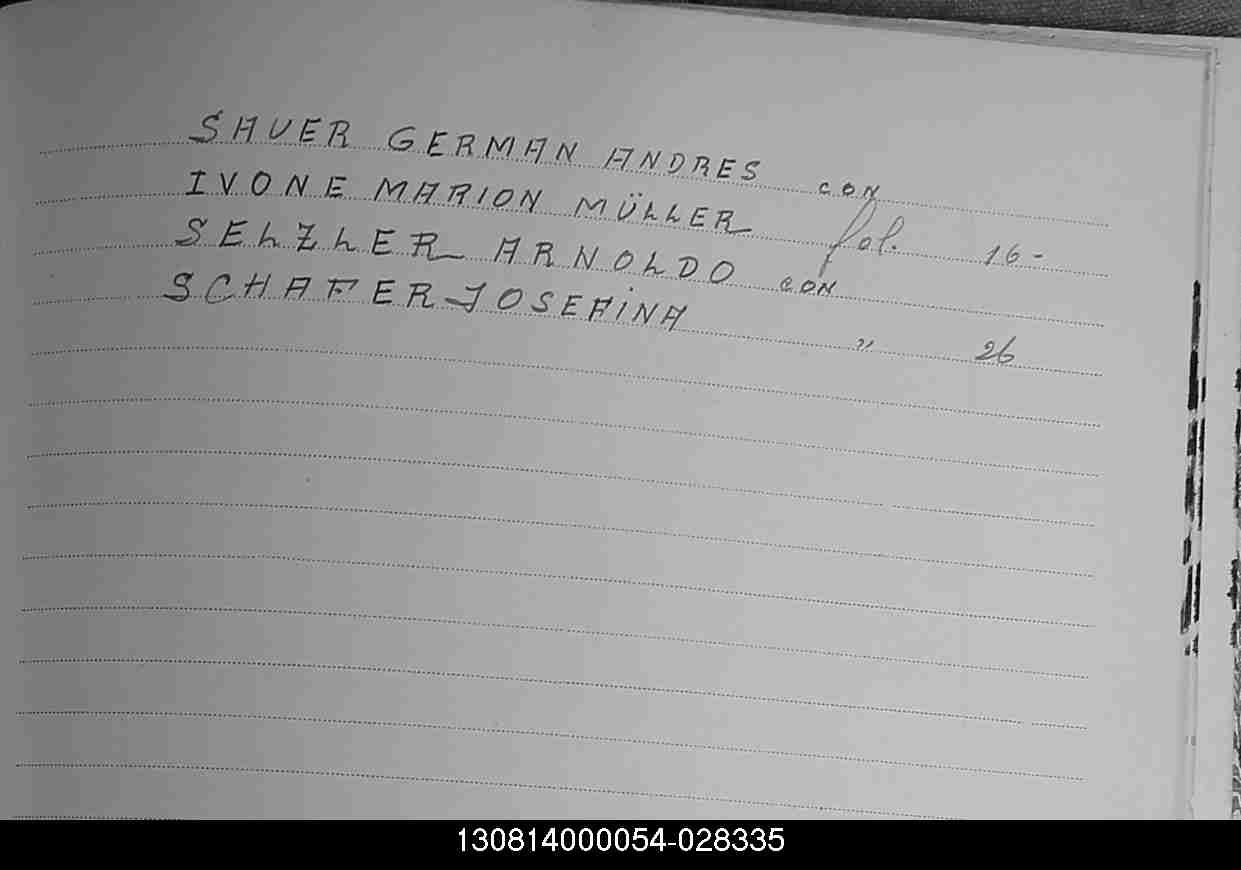 SAUER GERMAN ANDRES con
IVONE MARION MÜLLER fol. 16-
SELZLER ARNOLDO con
SCHAFER JOSEFINA " 26
130814000054-028335